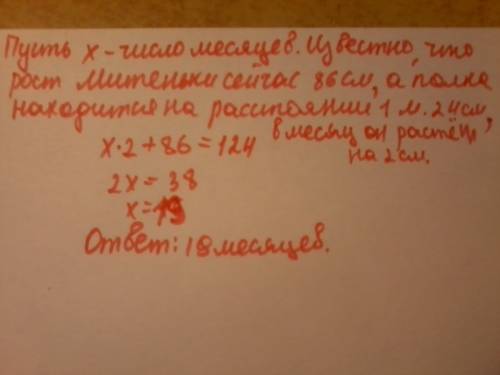 Пусть х - число месяцев. Известно, что
рост Митеньки сейчас 86 см, а полка
находится на расстоянии 1 м. 24 см,
в месяц он растёт
на 2 см.
х·2+86=124
2х = 38
х=19
Ответ: 19 месяцев.